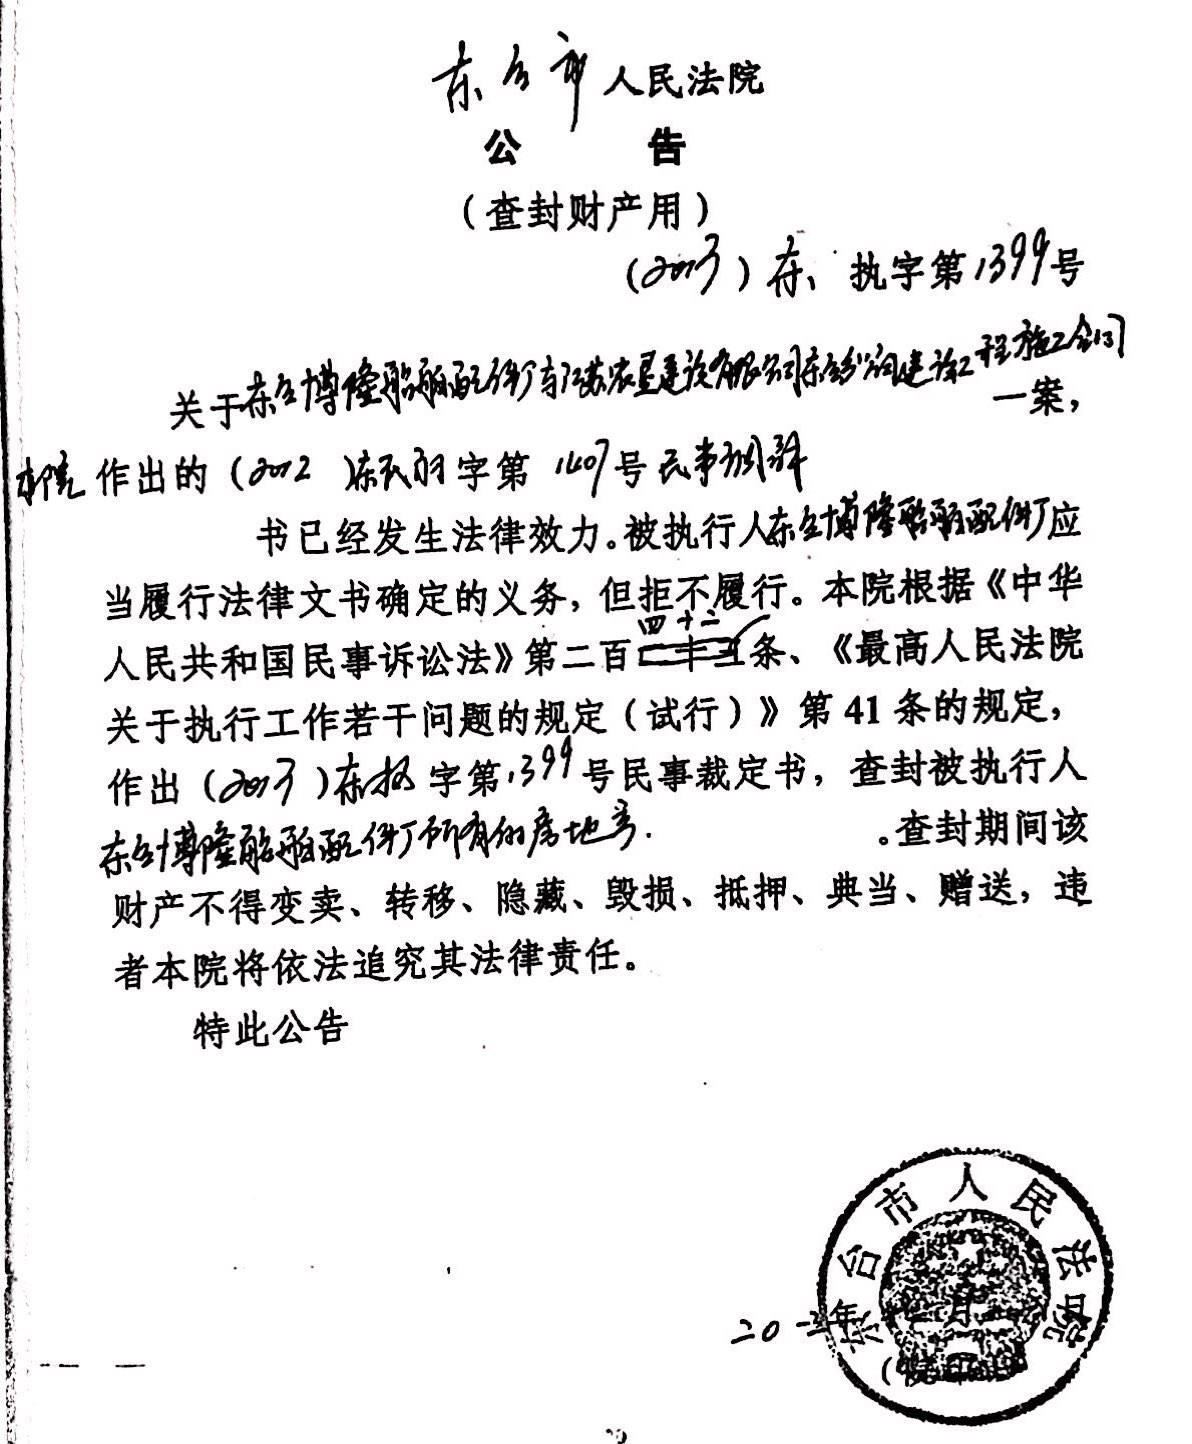 东台市人民法院
公 告
（查封财产用）
（2013）东 执字第1399号
关于东台博隆船舶配件厂与江苏农垦建设有限公司东台分公司建设工程施工合同
一案，
本院作出的（2012）东民初字第1407号民事调解
书已经发生法律效力。被执行人东台博隆船舶配件厂应
当履行法律文书确定的义务，但拒不履行。本院根据《中华
四十二
人民共和国民事诉讼法》第二百条、《最高人民法院
关于执行工作若干问题的规定（试行）》第41条的规定，
作出（2013）东执字第1399号民事裁定书，查封被执行人
东台博隆船舶配件厂所有的房地产. 。查封期间该
财产不得变卖、转移、隐藏、毁损、抵押、典当、赠送，违
者本院将依法追究其法律责任。
特此公告
东台市人民法院
二0一三年 月 日
（院印）